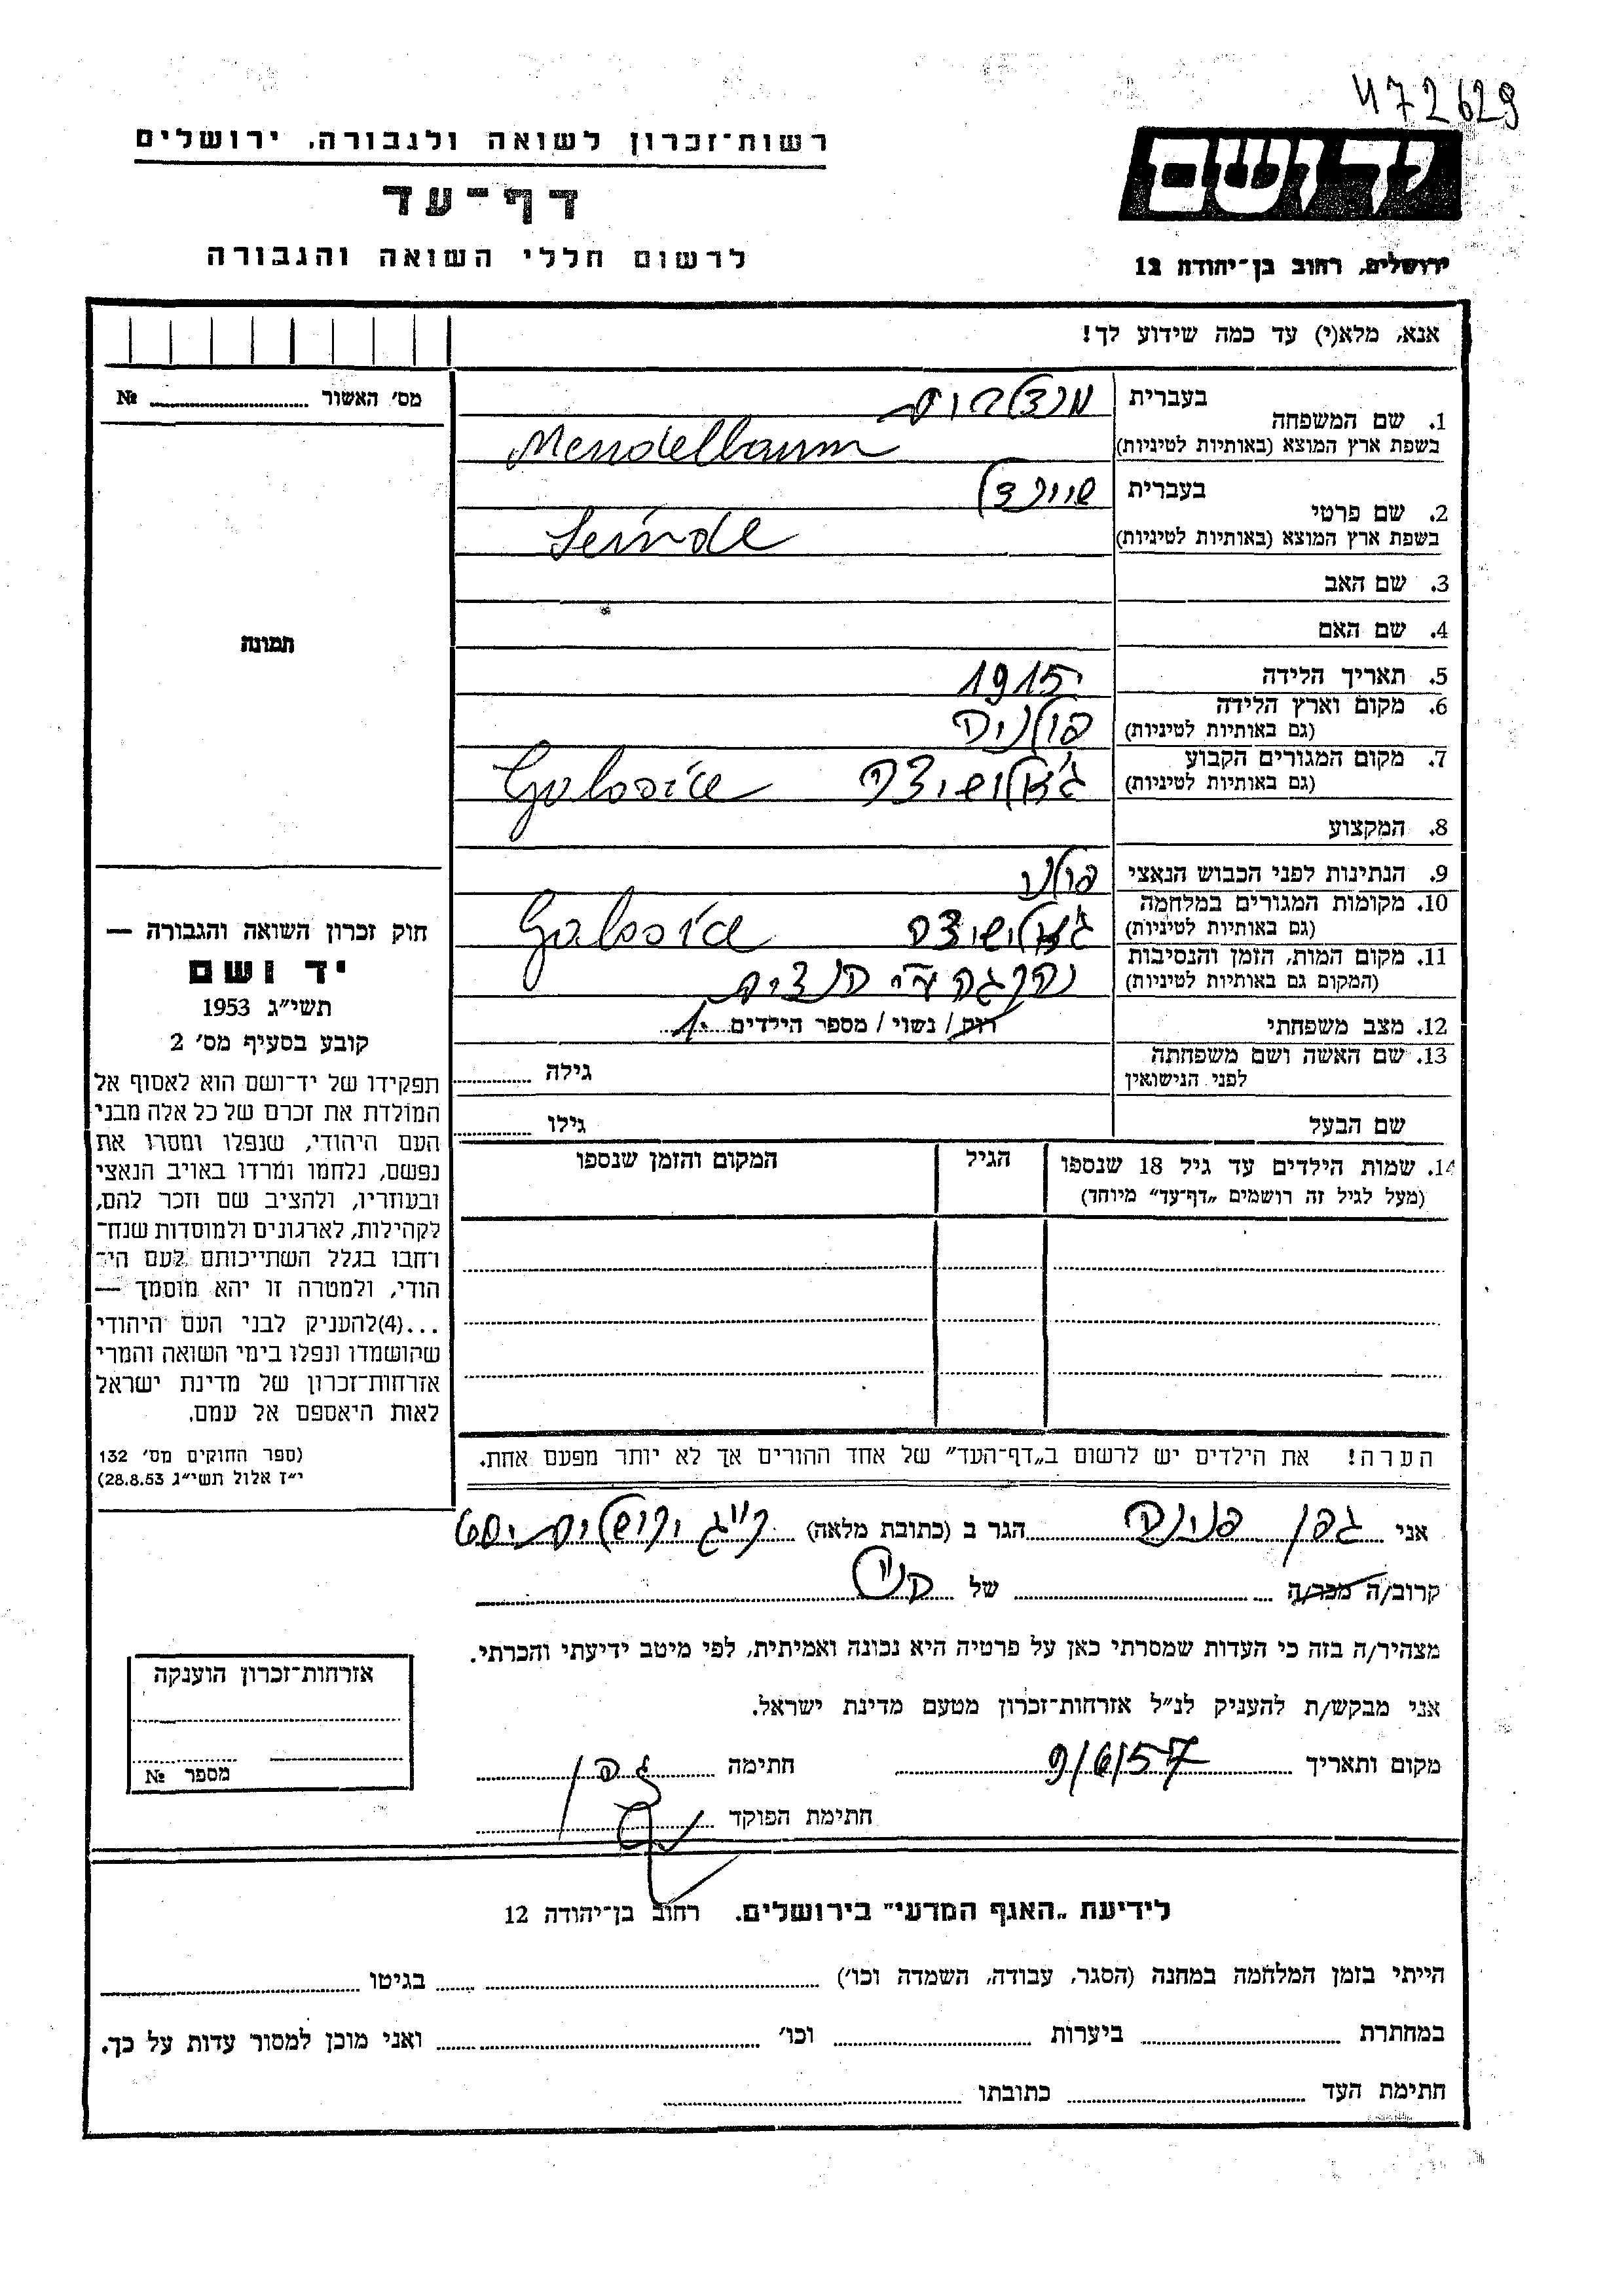 472629
רשות־זכרון לשואה ולגבורה, ירושלים
דף־עד
לרשום חללי השואה והגבורה
ידושם
ירושלים, רחוב בן־יהודה 12
אנא, מלא(י) עד כמה שידוע לך!
מס׳ האשור № 
1. שם המשפחה בעברית מנדלבוים
בשפת ארץ המוצא (באותיות לטיניות) Mendelbaum
2. שם פרטי בעברית שיינדל
בשפת ארץ המוצא (באותיות לטיניות) Seindl
3. שם האב
4. שם האם
תמונה
5. תאריך הלידה 1915
6. מקום וארץ הלידה פולניה
(גם באותיות לטיניות)
7. מקום המגורים הקבוע
(גם באותיות לטיניות)
8. המקצוע
9. הנתינות לפני הכבוש הנאצי פולני
10. מקומות המגורים במלחמה
(גם באותיות לטיניות)
11. מקום המות, הזמן והנסיבות נהרגה ע״י הנצים
(המקום גם באותיות לטיניות)
12. מצב משפחתי רוק / נשוי / מספר הילדים
13. שם האשה ושם משפחתה גילה
לפני הנישואין
שם הבעל גילו
14. שמות הילדים עד גיל 18 שנספו הגיל המקום והזמן שנספו
(מעל לגיל זה רושמים „דף־עד״ מיוחד)
הערה! את הילדים יש לרשום ב„דף־העד״ של אחד ההורים אך לא יותר מפעם אחת.
חוק זכרון השואה והגבורה —
יד ושם
תשי״ג 1953
קובע בסעיף מס׳ 2
תפקידו של יד־ושם הוא לאסוף אל
המולדת את זכרם של כל אלה מבני
העם היהודי, שנפלו ומסרו את
נפשם, נלחמו ומרדו באויב הנאצי
ובעוזריו, ולהציב שם וזכר להם,
לקהילות, לארגונים ולמוסדות שנח־
רחבו בגלל השתייכותם לעם הי־
הודי, ולמטרה זו יהא מוסמך —
...(4)להעניק לבני העם היהודי
שהושמדו ונפלו בימי השואה והמרי
אזרחות־זכרון של מדינת ישראל
לאות היאספם אל עמם.
(ספר החוקים מס׳ 132
י״ז אלול תשי״ג 28.8.53)
אני גפן פנינה הגר ב (כתובת מלאה)
קרוב/ה מכר/ה של הנ״ל
מצהיר/ה בזה כי העדות שמסרתי כאן על פרטיה היא נכונה ואמיתית, לפי מיטב ידיעתי והכרתי.
אני מבקש/ת להעניק לנ״ל אזרחות־זכרון מטעם מדינת ישראל.
מקום ותאריך 9/6/57 חתימה גפן
חתימת הפוקד
אזרחות־זכרון הוענקה
מספר №
לידיעת „האגף המדעי״ בירושלים. רחוב בן־יהודה 12
הייתי בזמן המלחמה במחנה (הסגר, עבודה, השמדה וכו׳) בגיטו
במחתרת ביערות וכו׳ ואני מוכן למסור עדות על כך.
חתימת העד כתובתו